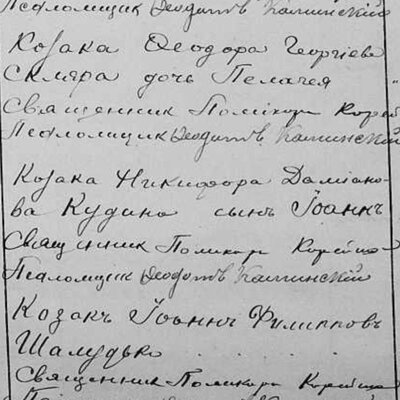 Псаломщикъ Ѳеодотъ Кашинскій
Козака Ѳеодора Георгіева
Скляра дочь Пелагея
Священник Поликарп
Псаломщик Ѳеодотъ Кашинскій
Козака Никифора Даміано-
ва Кудина сынъ Іоаннъ
Священник Поликарп
Псаломщик Ѳеодотъ Кашинскій
Козакъ Іоаннъ Филипповъ
Шалудько
Священник Поликарп